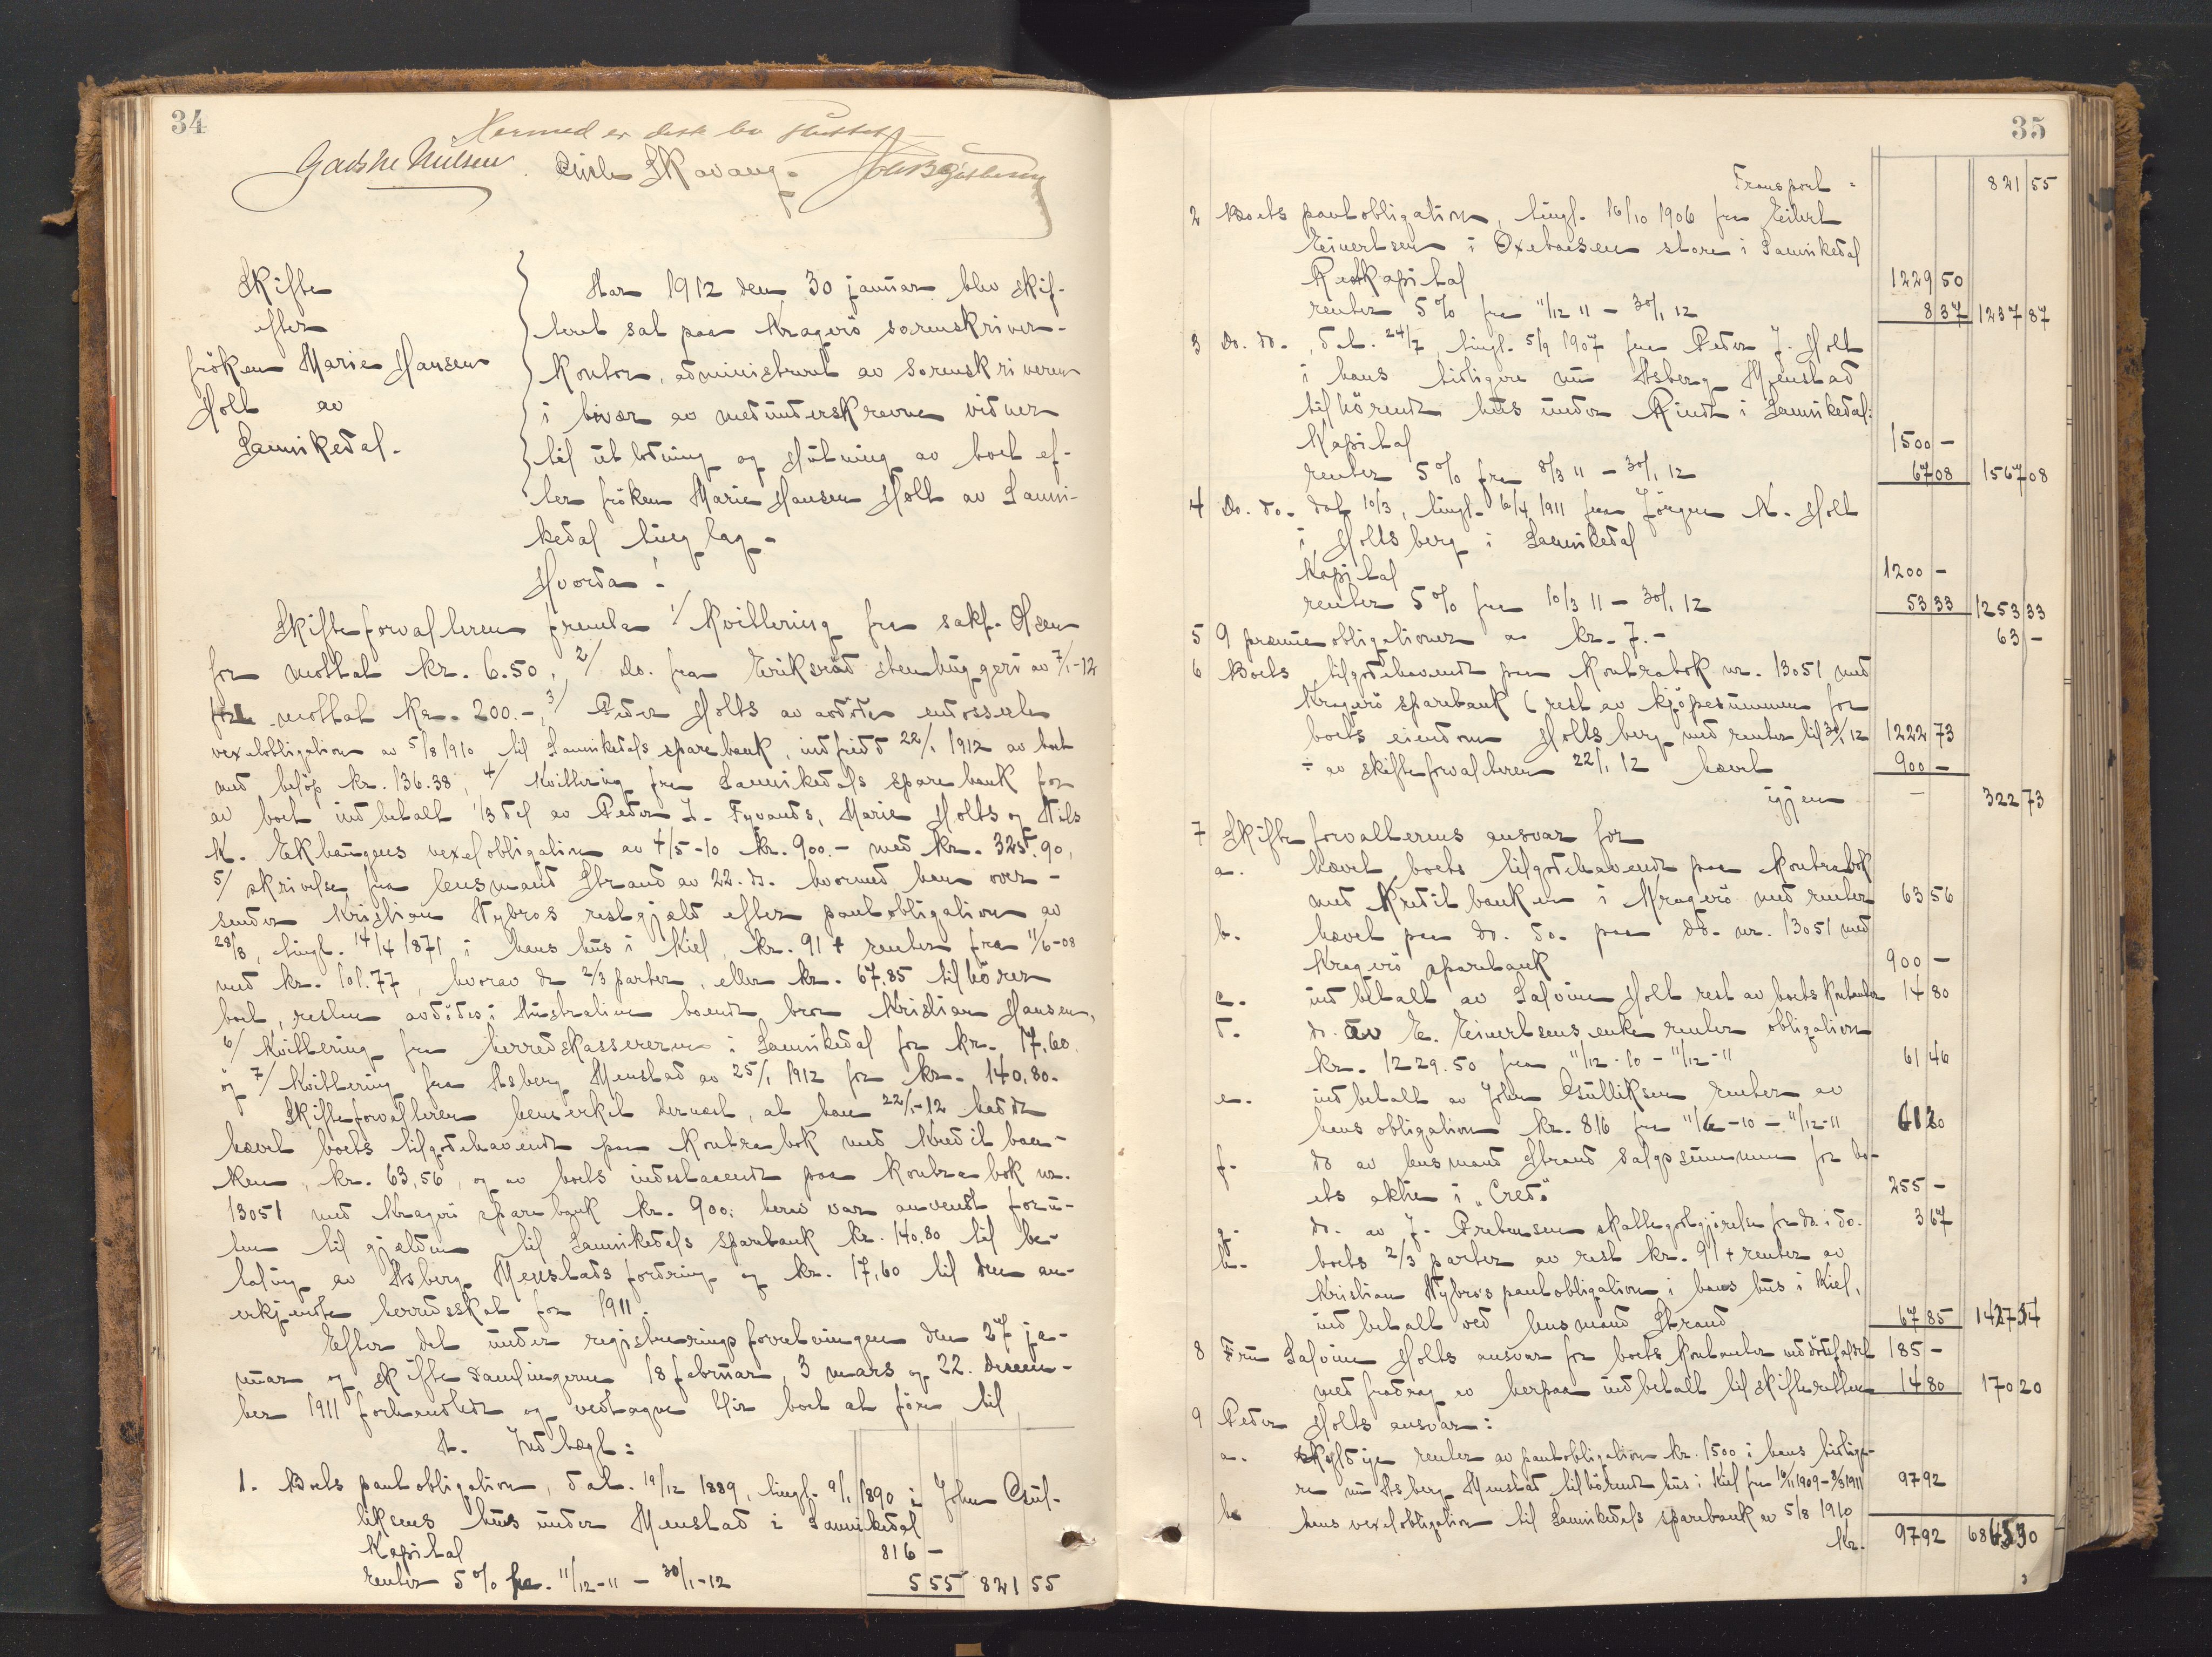 34
Hermed er dette bo sluttet
Skavang.
Skifte
efter
fröken Marie Hansen
Holt av
Sannikedal.
Aar 1912 den 30 januar blev skif-
teret sat paa Kragerö sorenskriver-
kontor, administreret av sorenskriveren
i bivær av medunderskrevne vidner
til utlodning og slutning av boet ef-
ter fröken Marie Hansen Holt av Sanni-
kedal tinglag.
Hvorda:
Skifteforvalteren fremla 1/ Kvittering fra sakf. Olsen
for mottat kr. 6.50, 2/ do. fra Eriksröd stenhuggeri av 7/1-12
for mottat kr. 200.-, 3/ Peder Holts av avdöde endosserte
vexelobligation av 5/8 1910 til Sannikedals sparebank, indfridd 22/1 1912 av boet
med belöp kr. 136.38, 4/ Kvittering fra Sannikedals sparebank for
av boet indbetalt 1/3 del av Peder J. Fyvands, Marie Holts og Nils
K. Ekhaugens vexelobligation av 4/5-10 kr. 900.- med kr. 325.90,
5/ skrivelse fra lensmand Strand av 22. ds. hvormed han over-
sender Kristian Nybros restgjæld efter pantobligation av
28/8, tingl. 14/4 1871 i hans hus i Kiel, kr. 91 + renter fra 11/6-08
med kr. 101.77, hvorav de 2/3 parter, eller kr. 67.85 tilhörer
boet, resten avdödes i Australien boende bror Kristian Hansen,
6/ Kvittering fra herredskassereren i Sannikedal for kr. 17,60
og 7/ Kvittering fra Asberg Menstad av 25/1 1912 for kr. 140,80.
Skifteforvalteren bemerket dernæst, at han 22/1-12 hadde
hævet boets tilgodehavende paa kontrabok med Kreditban-
ken, kr. 63,56, og av boets indestaaende paa kontrabok nr.
13051 med Kragerö sparebank kr. 900; herav var anvendt foru-
ten til gjælden til Sannikedals sparebank kr. 140.80 til be-
taling av Asberg Menstads fordring og kr. 17,60 til den an-
erkjendte herredsskat for 1911.
Efter det under registreringsforretningen den 27 ja-
nuar og skiftesamlingerne 18 februar, 3 mars og 22. decem-
ber 1911 forhandlede og vedtagne blir boet at före til
A. Indtægt:
1. Boets pantobligation, dat. 19/12 1889, tingl. 9/1 1890 i John Gul-
liksens hus under Menstad i Sannikedal
Kapital 816 -
renter 5% fra 11/12-11 - 30/1-12 5 55 821 55
35
Transport = 821 55
2 Boets pantobligation, tingl. 16/10 1906 fra Eivert
Eivertsen i Oxebaasen store i Sannikedal
Restkapital 1229 50
renter 5% fra 11/12 11 - 30/1 12 8 37 1237 87
3 Do. do., dat. 24/7, tingl. 5/9 1907 fra Peder J. Holt
i hans tidligere nu Asberg Menstad
tilhörende hus under Rinde i Sannikedal:
Kapital 1500 -
renter 5% fra 8/3 11 - 30/1 12 67 08 1567 08
4 Do. do. dat 10/3, tingl. 6/4 1911 fra Jörgen N. Holt
i Holtsberg i Sannikedal
Kapital 1200 -
renter 5% fra 10/3 11 - 30/1 12 53 33 1253 33
5 9 præmieobligationer a kr. 7.- 63 -
6 Boets tilgodehavende paa kontrabok nr. 13051 med
Kragerö sparebank (rest av kjöpesummen for
boets eiendom Holtsberg med renter til 30/1 12 1222 73
÷ av skifteforvalteren 22/1 12 hævet 900 -
igjen - 322 73
7 Skifteforvalterens ansvar for
a. hævet boets tilgodehavende paa kontrabok
med Kreditbanken i Kragerö med renter 63 56
b. hævet paa do. do. paa do. nr. 13051 med
Kragerö sparebank 900 -
c. indbetalt av Salvine Holt rest av boets kontanter 14 80
d. do. av E. Eivertsens enke renter obligation
kr. 1229.50 fra 11/12-10 - 11/12-11 61 46
e. indbetalt av John Gulliksen renter av
hans obligation kr. 816 fra 11/6-10 - 11/12-11 61 20
f. do av lensmand Strand salgssummen for bo-
ets aktie i "Credö" 255 -
g. do. av J. Prebensen skattegodtgjörelse for do. i do. 3 67
h. boets 2/3 parter av rest kr. 91 + renter av
Kristian Nybros pantobligation i hans hus i Kiel,
indbetalt ved lensmand Strand 67 85 1427 54
8 Fru Salvine Holts ansvar for boets kontanter ved dödsfaldet 185 -
med fradrag av herpaa indbetalt til skifteretten 14 80 170 20
9 Peder Holts ansvar:
a. skyldige renter av pantobligation kr. 1500 i hans tidlige-
re nu Asberg Menstad tilhörende hus i Kiel fra 1909 - 8/3 1911 97 92
b hans vexelobligation til Sannikedals sparebank av 5/8 1910
Kr. 97 92 30